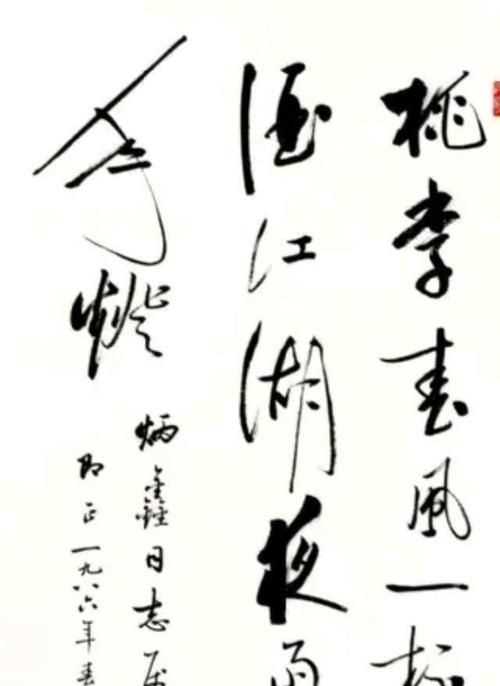 桃李春風一杯
酒江湖夜雨
十年燈
炳鑫同志属
即正一九八六年春